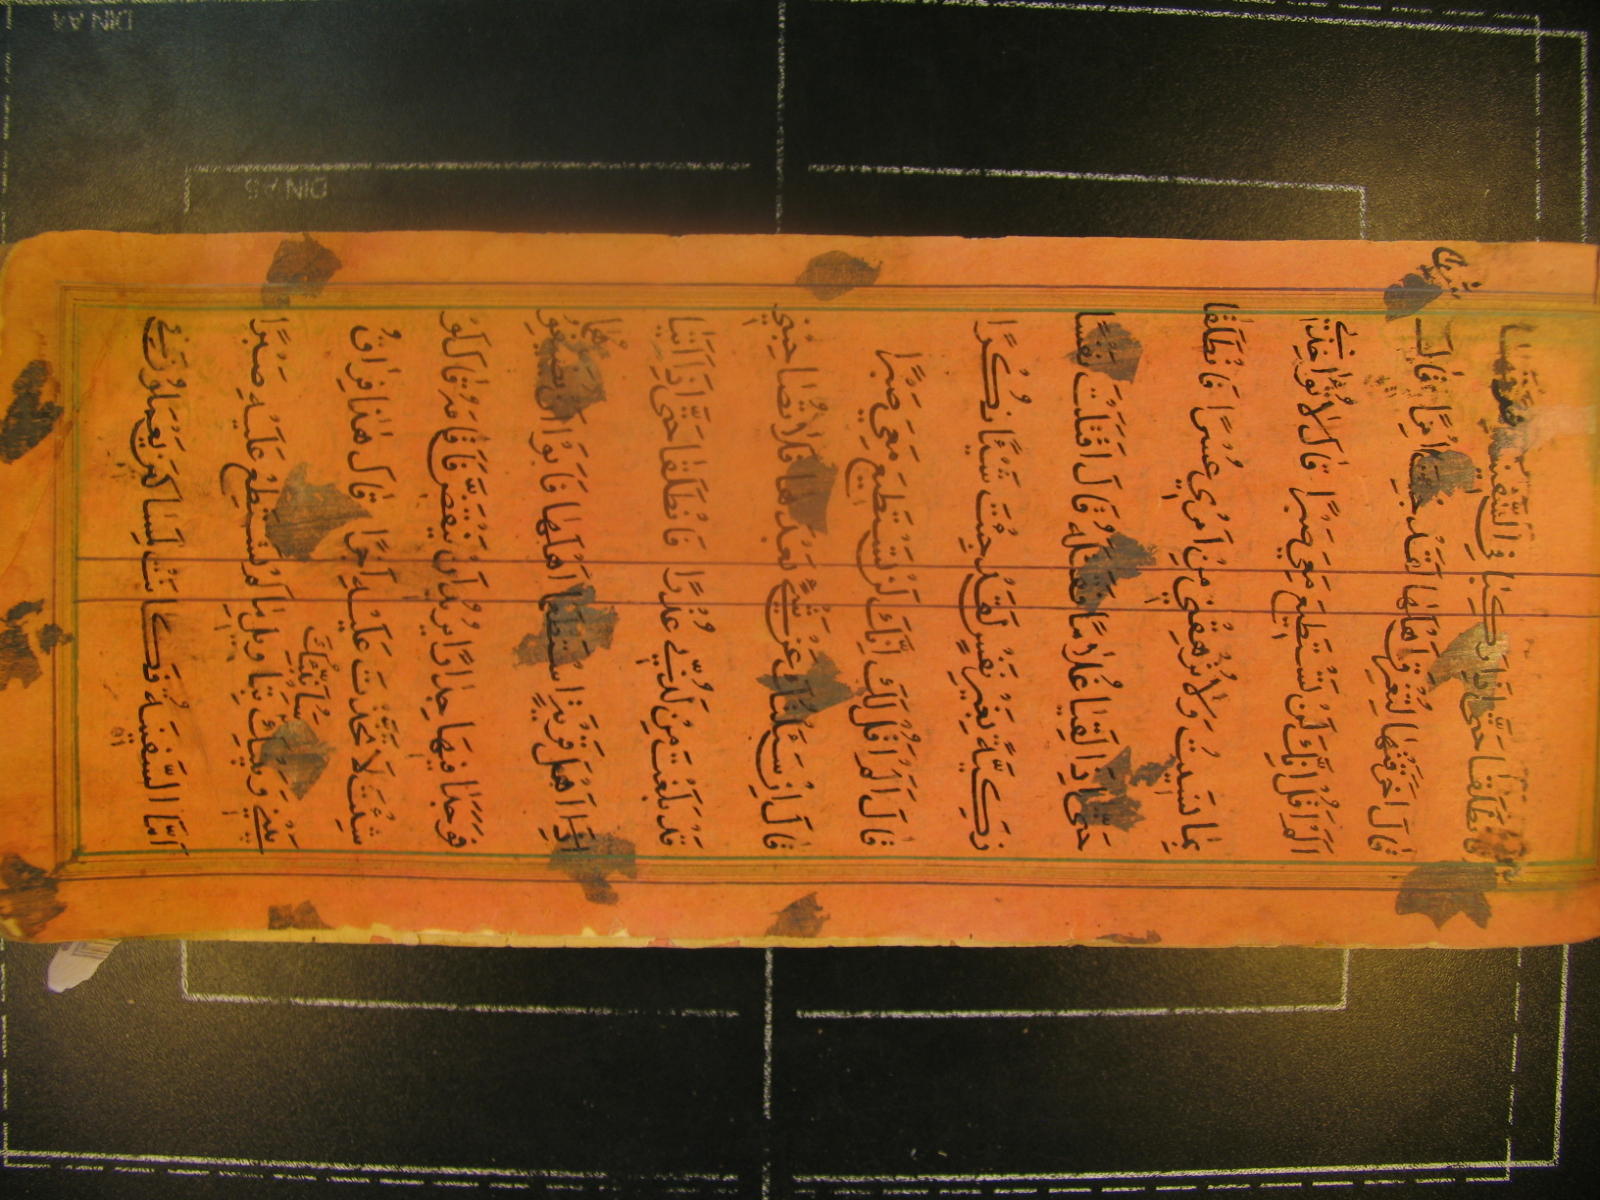 فَانْطَلَقَا حَتَّى اِذَا رَكِبَا فِي السَّفِينَةِ خَرَقَهَا
قَالَ اَخَرَقْتَهَا لِتُغْرِقَ اَهْلَهَا لَقَدْ جِئْتَ اِمْرًا قَالَ
اَلَمْ اَقُلْ اِنَّكَ لَنْ تَسْتَطِيعَ مَعِيَ صَبْرًا قَالَ لَا تُؤَاخِذْنِي
بِمَا نَسِيتُ وَلَا تُرْهِقْنِي مِنْ اَمْرِي عُسْرًا فَانْطَلَقَا
حَتَّى اِذَا لَقِيَا غُلَامًا فَقَتَلَهُ قَالَ اَقَتَلْتَ نَفْسًا
زَكِيَّةً بِغَيْرِ نَفْسٍ لَقَدْ جِئْتَ شَيْئًا نُكْرًا
قَالَ اَلَمْ اَقُلْ لَكَ اِنَّكَ لَنْ تَسْتَطِيعَ مَعِيَ صَبْرًا
قَالَ اِنْ سَأَلْتُكَ عَنْ شَيْءٍ بَعْدَهَا فَلَا تُصَاحِبْنِي
قَدْ بَلَغْتَ مِنْ لَدُنِّي عُذْرًا فَانْطَلَقَا حَتَّى اِذَا اَتَيَا
اِذَا اَهْلَ قَرْيَةٍ اسْتَطْعَمَا اَهْلَهَا فَاَبَوْا اَنْ يُضَيِّفُوهُمَا
فَوَجَدَا فِيهَا جِدَارًا يُرِيدُ اَنْ يَنْقَضَّ فَاَقَامَهُ قَالَ لَوْ
شِئْتَ لَاتَّخَذْتَ عَلَيْهِ اَجْرًا قَالَ هَذَا فِرَاقُ
بَيْنِي وَبَيْنِكَ سَأُنَبِّئُكَ بِتَأْوِيلِ مَا لَمْ تَسْتَطِعْ عَلَيْهِ صَبْرًا
اَمَّا السَّفِينَةُ فَكَانَتْ لِمَسَاكِينَ يَعْمَلُونَ فِي
DIN A4
DIN A5